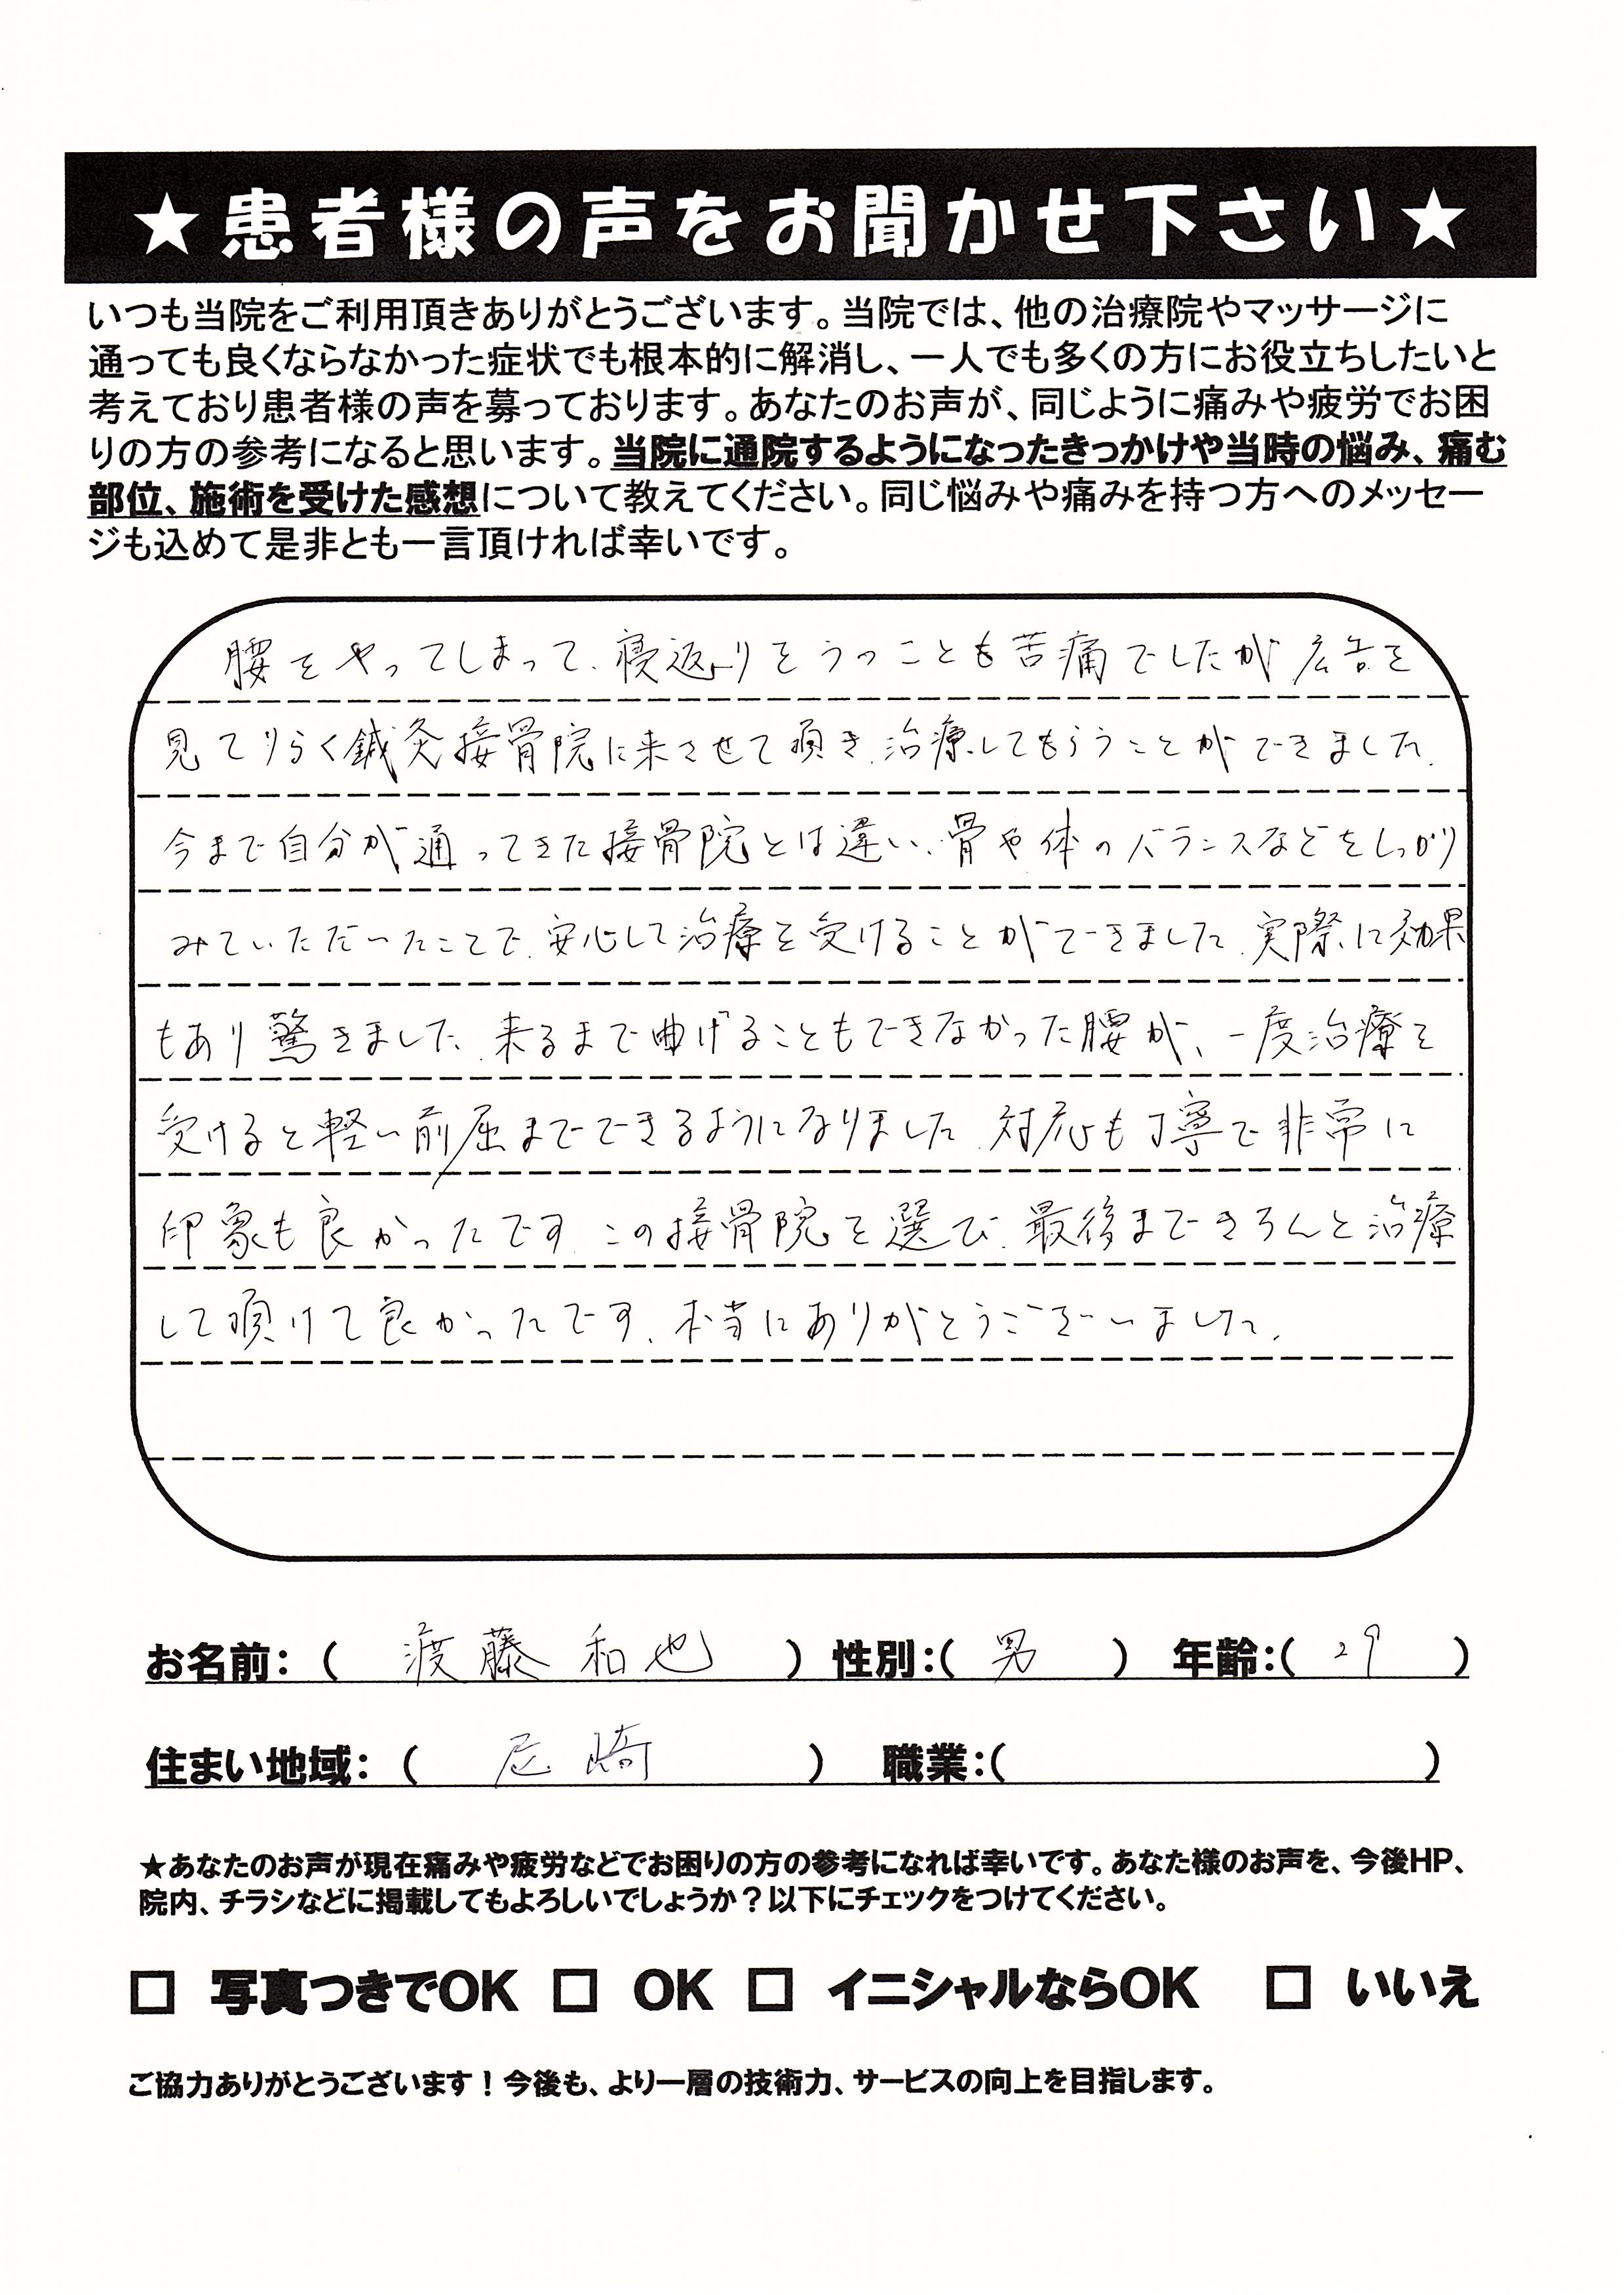 ★患者様の声をお聞かせ下さい★
いつも当院をご利用頂きありがとうございます。当院では、他の治療院やマッサージに
通っても良くならなかった症状でも根本的に解消し、一人でも多くの方にお役立ちしたいと
考えており患者様の声を募っております。あなたのお声が、同じように痛みや疲労でお困
りの方の参考になると思います。当院に通院するようになったきっかけや当時の悩み、痛む
部位、施術を受けた感想について教えてください。同じ悩みや痛みを持つ方へのメッセー
ジも込めて是非とも一言頂ければ幸いです。
腰をやってしまって、寝返りをうつことも苦痛でしたが広告を
見てりらく鍼灸接骨院に来させて頂き、治療してもらうことができました。
今まで自分が通ってきた接骨院とは違い、骨や体のバランスなどをしっかり
みていただいたことで、安心して治療を受けることができました。実際に効果
もあり驚きました。来るまで曲げることもできなかった腰が、一度治療を
受けると軽い前屈までできるようになりました。対応も丁寧で非常に
印象も良かったです。この接骨院を選び、最後まできちんと治療
して頂けて良かったです。本当にありがとうございました。
お名前：（ 渡藤 和也 ） 性別：（ 男 ） 年齢：（ 29 ）
住まい地域：（ 尼崎 ） 職業：（ ）
★あなたのお声が現在痛みや疲労などでお困りの方の参考になれば幸いです。あなた様のお声を、今後HP、
院内、チラシなどに掲載してもよろしいでしょうか？以下にチェックをつけてください。
□ 写真つきでOK □ OK □ イニシャルならOK □ いいえ
ご協力ありがとうございます！今後も、より一層の技術力、サービスの向上を目指します。